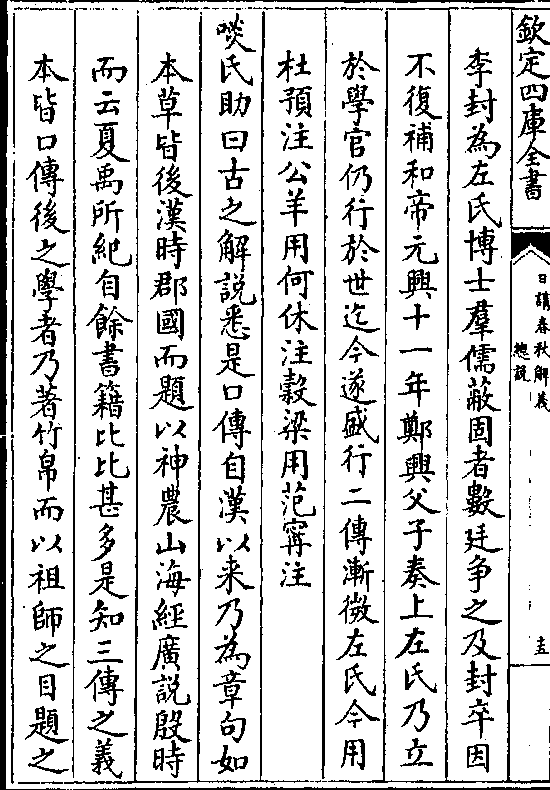 欽定四庫全書
日講春秋解義
總説
十五
李封為左氏博士羣儒蔽固者數廷争之及封卒因
不復補和帝元興十一年鄭興父子奏上左氏乃立
於學官仍行於世迄今遂盛行二傳漸微左氏今用
杜預注公羊用何休注穀梁用范甯注
啖氏助曰古之解説悉是口傳自漢以来乃為章句如
本草皆後漢時郡國而題以神農山海經廣説殷時
而云夏禹所紀自餘書籍比比甚多是知三傳之義
本皆口傳後之學者乃著竹帛而以祖師之目題之